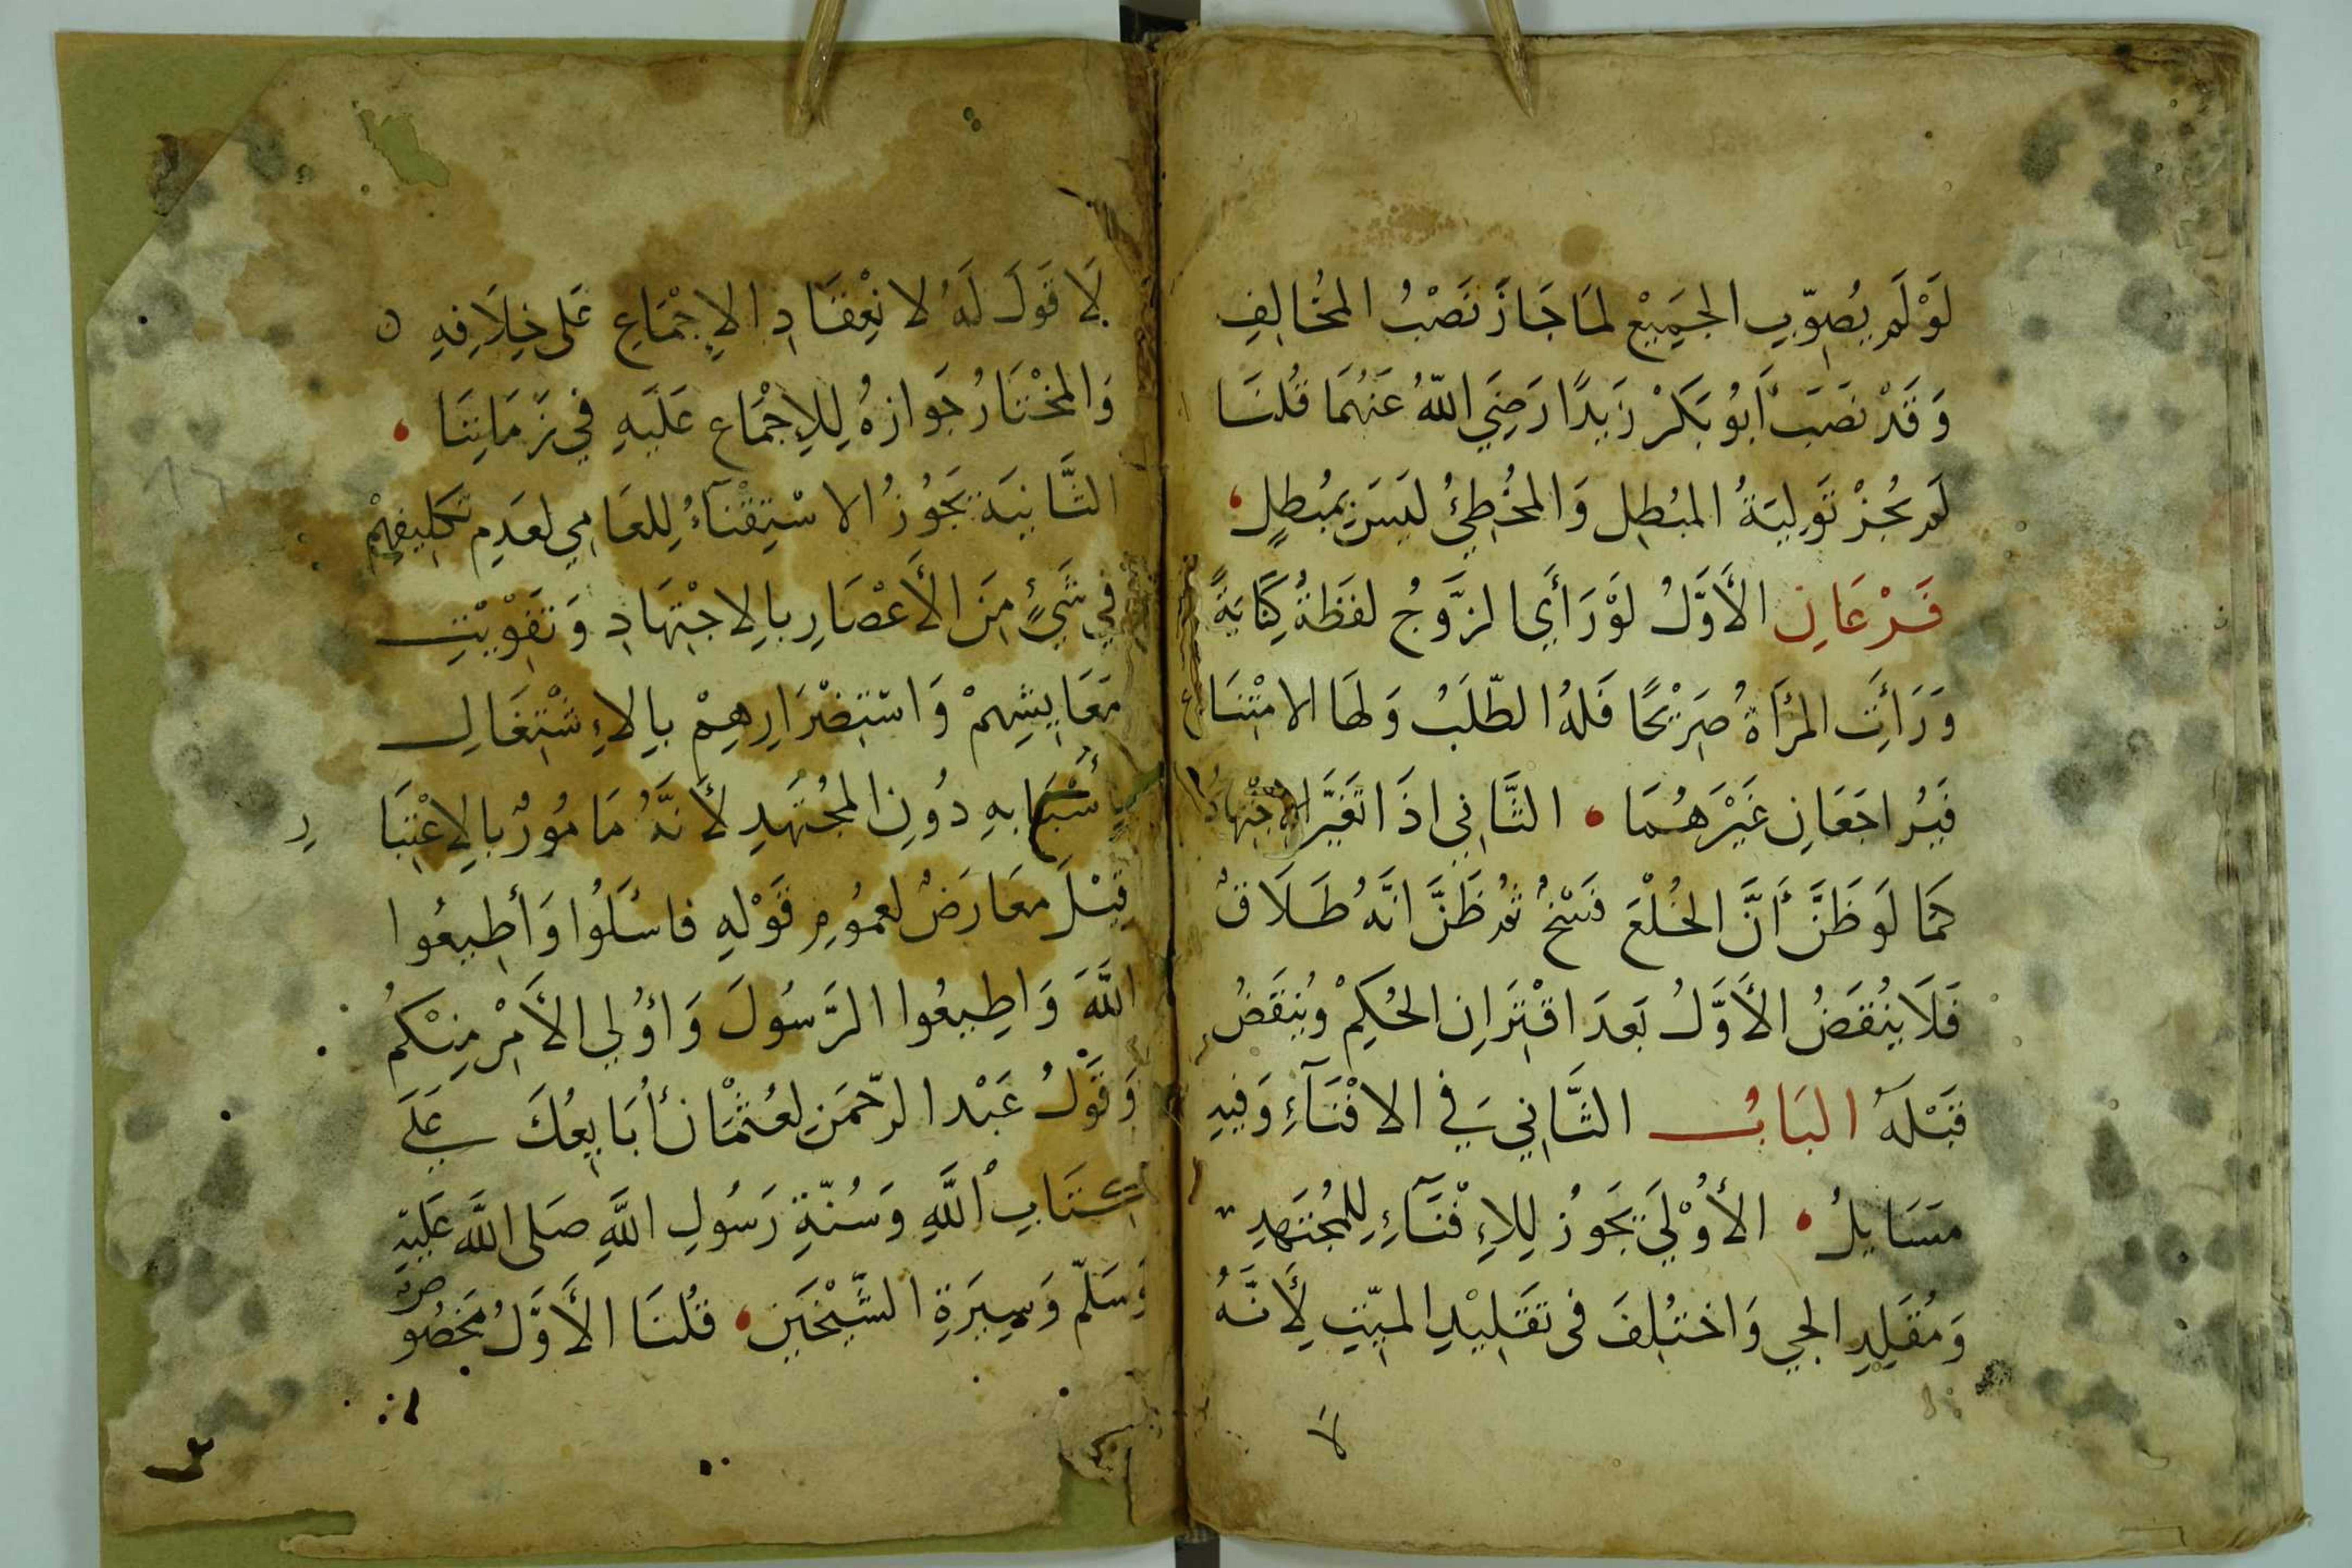 لَوْ لَمْ يُصَوِّبِ الجَمِيْعَ لَمَا جَازَ نَصْبُ المخُالِفِ
وَقَدْ نَصَبَ أَبُو بَكْرْ زَيدًا رَضِيَ اللّٰهُ عَنهُمَا قُلنَا
لَم يَجُزْ تَولِيَةُ المبُطِلِ وَالمخُطِئُ لَيسَ بمُبطِلٍ
فَرْعَانِ الأَوَّلُ لَوْ رَأَي الزَّوجُ لَفظَةُ كِنَايَةً
وَرَأَتِ المرْأَةُ صَرِيْحًا فَلَهُ الطّلَبُ وَلَهَا الامْتِنَاع
فَيُراجَعَانِ غَيْرَهُمَا الثَّانِي اذَا تَغَيَّرَ الاجْتِهَادُ
كَمَا لَو ظَنَّ أَنَّ الخُلْعَ فَسْخٌ ثُمَّ ظَنَّ انَّهُ طَلَاقٌ
فَلَا يُنْقَضُ الأَوَّلُ بَعدَ اقْتِرَانِ الحُكمِْ وَيُنقَضُ
قَبْلَهُ البَابُ الثَّانِي فِي الافْتَآءِ وَفِيهِ
مَسَايِلُ الأُوْلَي يَجُوزُ لِلاِفْتَآءِ لِلمُجْتَهدِ
وَمُقَلِدِ الحيِ وَاختُلِفَ فى تَقَلِيْدِ الميّتِ لِأَنَّهُ
لَا
لَا قَولَ لَهُ لانْعِقَادِ الاِجْمَاعِ عَلى خِلَافِهِ
وَالمخْتَارُ جَوازهُ لِلاِجْمَاعِ عَلَيهِ في زَمَانِنَا
الثَّانِيَة يَجُوزُ الاسْتِفْتآءُ لِلعَامِي لعَدَمِ تَكلِيفِهِمْ
فِي شَيْءٍ مِنَ الأَعْصَارِ بالِاجْتِهَادِ وَتَفْوِيْتِ
مَعَايِشِهِمْ وَاسْتِضْرَارِهِمْ بالاِشْتِغَالِ
بأَسْبَابِهِ دُونِ المجُتَهدِ لأَنَّهُ مَامُورٌ بالِاعْتِبَارِ
قِيْلَ مُعَارَضٌ لعمُومِ قَوْلِهِ فاسْئَلُوا وَأَطِيعُوا
اللَّهَ وَاطِيعُوا الرَّسُولَ وَاوُلِي الأَمْرِ مِنكمُ
وَقَوْلُ عَبْد الرّحمَنِ لعُثمَانَ أُبَايِعُكَ عَلَي
كِتَابِ اللَّهِ وَسُنّةِ رَسُولِ اللَّهِ صَلى اللَّه عَلَيهِ
وَسَلّم وَسِيرَةِ الشَّيْخَينِ قُلنَا الأَوَّلُ مَخصُوصٌ